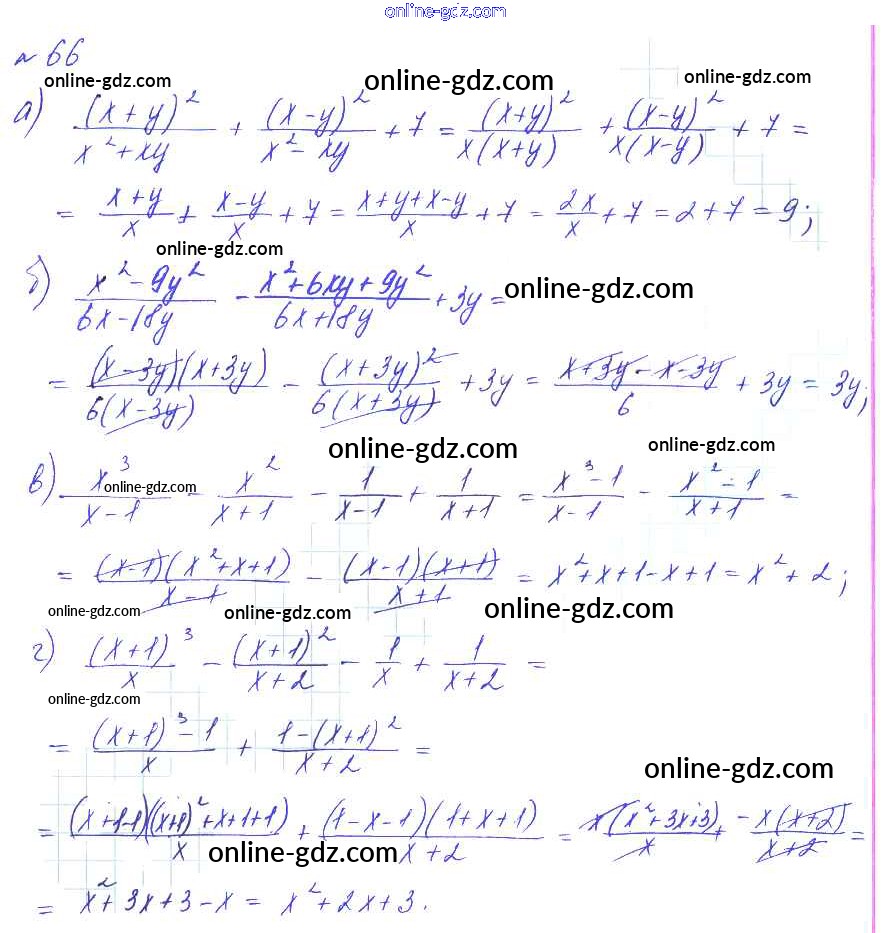 online-gdz.com
№ 66
online-gdz.com online-gdz.com online-gdz.com
а) (x+y)²/(x²+xy) + (x-y)²/(x²-xy) + 7 = (x+y)²/(x(x+y)) + (x-y)²/(x(x-y)) + 7 =
= (x+y)/x + (x-y)/x + 7 = (x+y+x-y)/x + 7 = 2x/x + 7 = 2+7 = 9;
online-gdz.com
б) (x²-9y²)/(6x-18y) - (x²+6xy+9y²)/(6x+18y) + 3y = online-gdz.com
= ((x-3y)(x+3y))/(6(x-3y)) - (x+3y)²/(6(x+3y)) + 3y = (x+3y-x-3y)/6 + 3y = 3y;
online-gdz.com online-gdz.com
в) x³/(x-1) - x²/(x+1) - 1/(x-1) + 1/(x+1) = (x³-1)/(x-1) - (x²-1)/(x+1) =
online-gdz.com
= ((x-1)(x²+x+1))/(x-1) - ((x-1)(x+1))/(x+1) = x²+x+1-x+1 = x²+2;
online-gdz.com online-gdz.com online-gdz.com
г) (x+1)³/x - (x+1)²/(x+2) - 1/x + 1/(x+2) =
online-gdz.com
= ((x+1)³-1)/x + (1-(x+1)²)/(x+2) =
online-gdz.com
= ((x+1-1)((x+1)²+x+1+1))/x + ((1-x-1)(1+x+1))/(x+2) = (x(x²+3x+3))/x + (-x(x+2))/(x+2) =
online-gdz.com
= x²+3x+3-x = x²+2x+3.